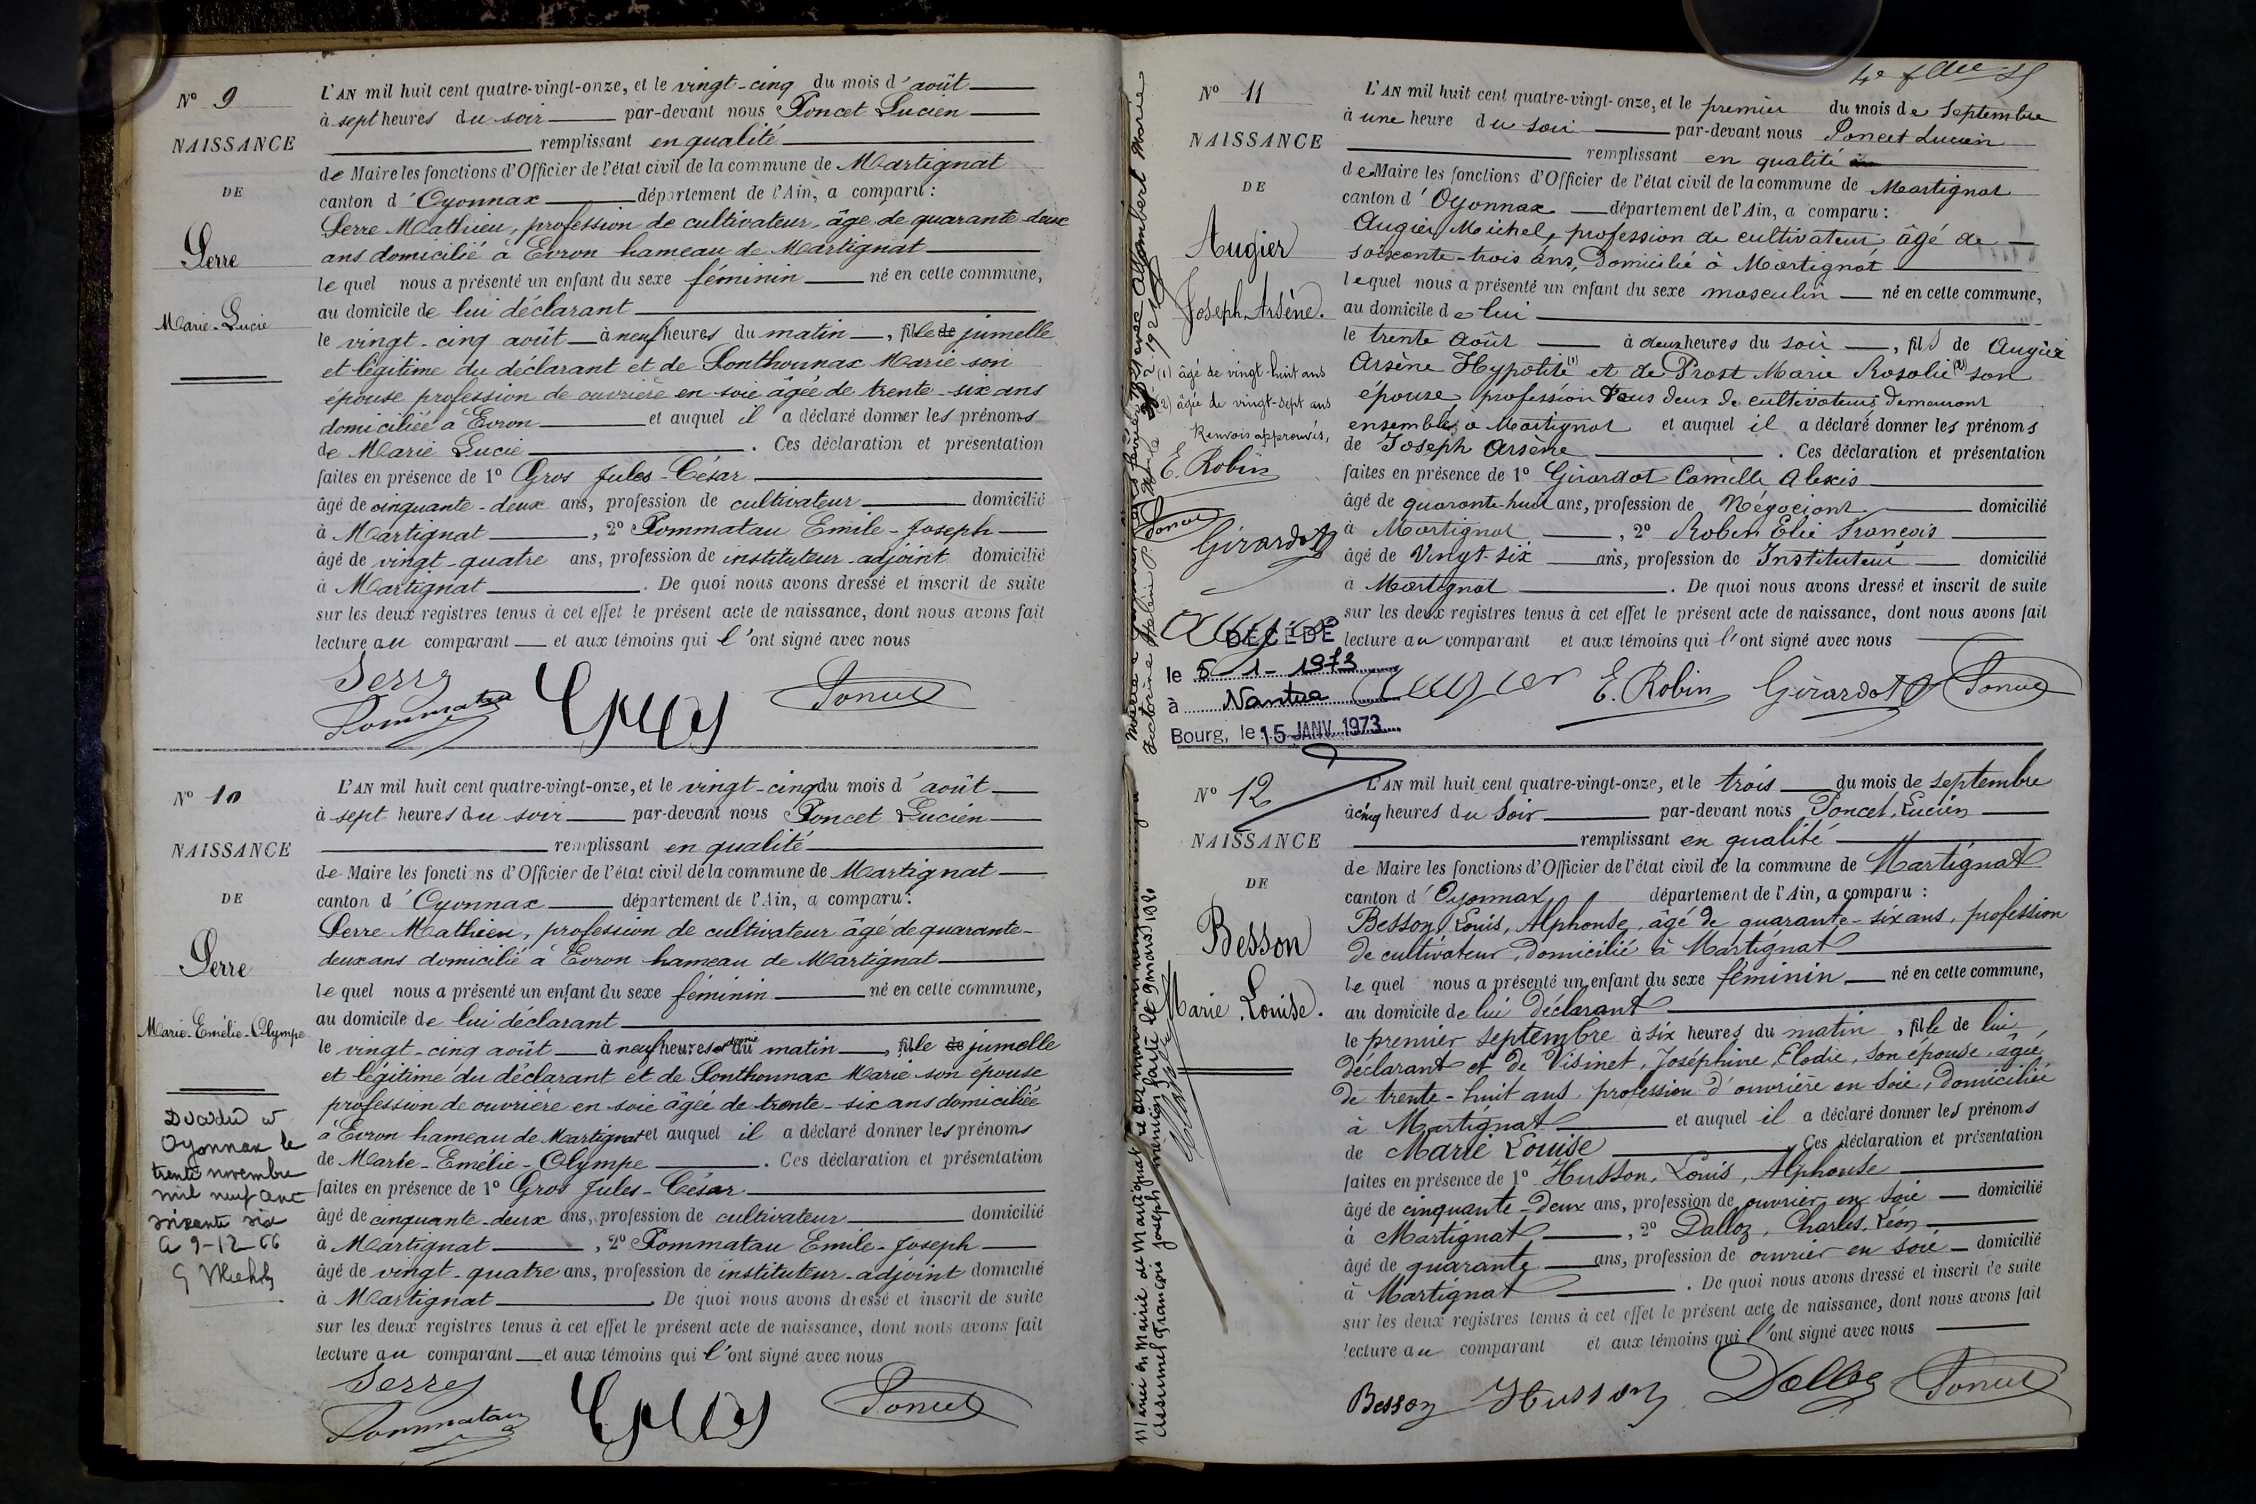 Nº 9
NAISSANCE
DE
Serre
Marie-Lucie
L'AN mil huit cent quatre-vingt-onze, et le vingt-cinq du mois d'août
à sept heures du soir par-devant nous Poncet Lucien
remplissant en qualité
de Maire les fonctions d'Officier de l'état civil de la commune de Martignat
canton d'Oyonnax département de l'Ain, a comparu :
Serre Mathieu, profession de cultivateur, âgé de quarante-deux
ans domicilié à Evron hameau de Martignat
lequel nous a présenté un enfant du sexe féminin né en cette commune,
au domicile de lui déclarant
le vingt-cinq août à neuf heures du matin, fille de jumelle
et légitime du déclarant et de Sonthonnax Marie son
épouse profession de ouvrière en soie âgée de trente-six ans
domiciliée à Evron et auquel il a déclaré donner les prénoms
de Marie Lucie. Ces déclaration et présentation
faites en présence de 1º Gros Jules-César
âgé de cinquante-deux ans, profession de cultivateur domicilié
à Martignat, 2º Pommatau Emile-Joseph
âgé de vingt-quatre ans, profession de instituteur-adjoint domicilié
à Martignat. De quoi nous avons dressé et inscrit de suite
sur les deux registres tenus à cet effet le présent acte de naissance, dont nous avons fait
lecture au comparant et aux témoins qui l'ont signé avec nous
Serre
Pommatau Gros Poncet
Nº 10
NAISSANCE
DE
Serre
Marie-Emélie-Olympe
Décédée à
Oyonnax le
trente novembre
mil neuf cent
soixante six
a 9-12-66
L'AN mil huit cent quatre-vingt-onze, et le vingt-cinq du mois d'août
à sept heures du soir par-devant nous Poncet Lucien
remplissant en qualité
de Maire les fonctions d'Officier de l'état civil de la commune de Martignat
canton d'Oyonnax département de l'Ain, a comparu :
Serre Mathieu, profession de cultivateur âgé de quarante-
deux ans domicilié à Evron hameau de Martignat
lequel nous a présenté un enfant du sexe féminin né en cette commune,
au domicile de lui déclarant
le vingt-cinq août à neuf heures et demie du matin, fille de jumelle
et légitime du déclarant et de Sonthonnax Marie son épouse
profession de ouvrière en soie âgée de trente-six ans domiciliée
à Evron hameau de Martignat et auquel il a déclaré donner les prénoms
de Marie-Emélie-Olympe. Ces déclaration et présentation
faites en présence de 1º Gros Jules-César
âgé de cinquante-deux ans, profession de cultivateur domicilié
à Martignat, 2º Pommatau Emile-Joseph
âgé de vingt-quatre ans, profession de instituteur-adjoint domicilié
à Martignat. De quoi nous avons dressé et inscrit de suite
sur les deux registres tenus à cet effet le présent acte de naissance, dont nous avons fait
lecture au comparant et aux témoins qui l'ont signé avec nous
Serre
Pommatau Gros Poncet
Nº 11
NAISSANCE
DE
Augier
Joseph Arsène.
(1) âgé de vingt-huit ans
(2) âgée de vingt-sept ans
Renvois approuvés,
E. Robin
Poncet
Girardot
Augier
DÉCÉDÉ
le 5-1-1973
à Nantua
Bourg, le 15 JANV. 1973
L'AN mil huit cent quatre-vingt-onze, et le premier du mois de Septembre
à une heure du soir par-devant nous Poncet Lucien
remplissant en qualité
de Maire les fonctions d'Officier de l'état civil de la commune de Martignat
canton d'Oyonnax département de l'Ain, a comparu :
Augier Michel, profession de cultivateur âgé de
soixante-trois ans, Domicilié à Martignat
lequel nous a présenté un enfant du sexe masculin né en cette commune,
au domicile de lui
le trente Août à deux heures du soir, fils de Augier
Arsène Hypolite (1) et de Prost Marie Rosalie (2) son
épouse profession tous deux de cultivateurs demeurant
ensemble à Martignat et auquel il a déclaré donner les prénoms
de Joseph Arsène. Ces déclaration et présentation
faites en présence de 1º Girardot Camille Alexis
âgé de quarante-huit ans, profession de Négociant domicilié
à Martignat, 2º Robin Elie François
âgé de Vingt-six ans, profession de Instituteur domicilié
à Martignat. De quoi nous avons dressé et inscrit de suite
sur les deux registres tenus à cet effet le présent acte de naissance, dont nous avons fait
lecture au comparant et aux témoins qui l'ont signé avec nous
Augier E. Robin Girardot Poncet
Nº 12
NAISSANCE
DE
Besson
Marie Louise.
L'AN mil huit cent quatre-vingt-onze, et le trois du mois de septembre
à cinq heures du Soir par-devant nous Poncet, Lucien
remplissant en qualité
de Maire les fonctions d'Officier de l'état civil de la commune de Martignat
canton d'Oyonnax département de l'Ain, a comparu :
Besson, Louis, Alphonse, âgé de quarante-six ans, profession
de cultivateur, domicilié à Martignat
lequel nous a présenté un enfant du sexe féminin né en cette commune,
au domicile de lui déclarant
le premier septembre à six heures du matin, fille de lui
déclarant et de Visinet, Joséphine, Elodie, son épouse, âgée
de trente-huit ans, profession d'ouvrière en soie, domiciliée
à Martignat et auquel il a déclaré donner les prénoms
de Marie Louise. Ces déclaration et présentation
faites en présence de 1º Husson, Louis, Alphonse
âgé de cinquante-deux ans, profession de ouvrier en soie domicilié
à Martignat, 2º Dalloz, Charles, Léon
âgé de quarante ans, profession de ouvrier en soie domicilié
à Martignat. De quoi nous avons dressé et inscrit de suite
sur les deux registres tenus à cet effet le présent acte de naissance, dont nous avons fait
lecture au comparant et aux témoins qui l'ont signé avec nous
Besson Husson Dalloz Poncet